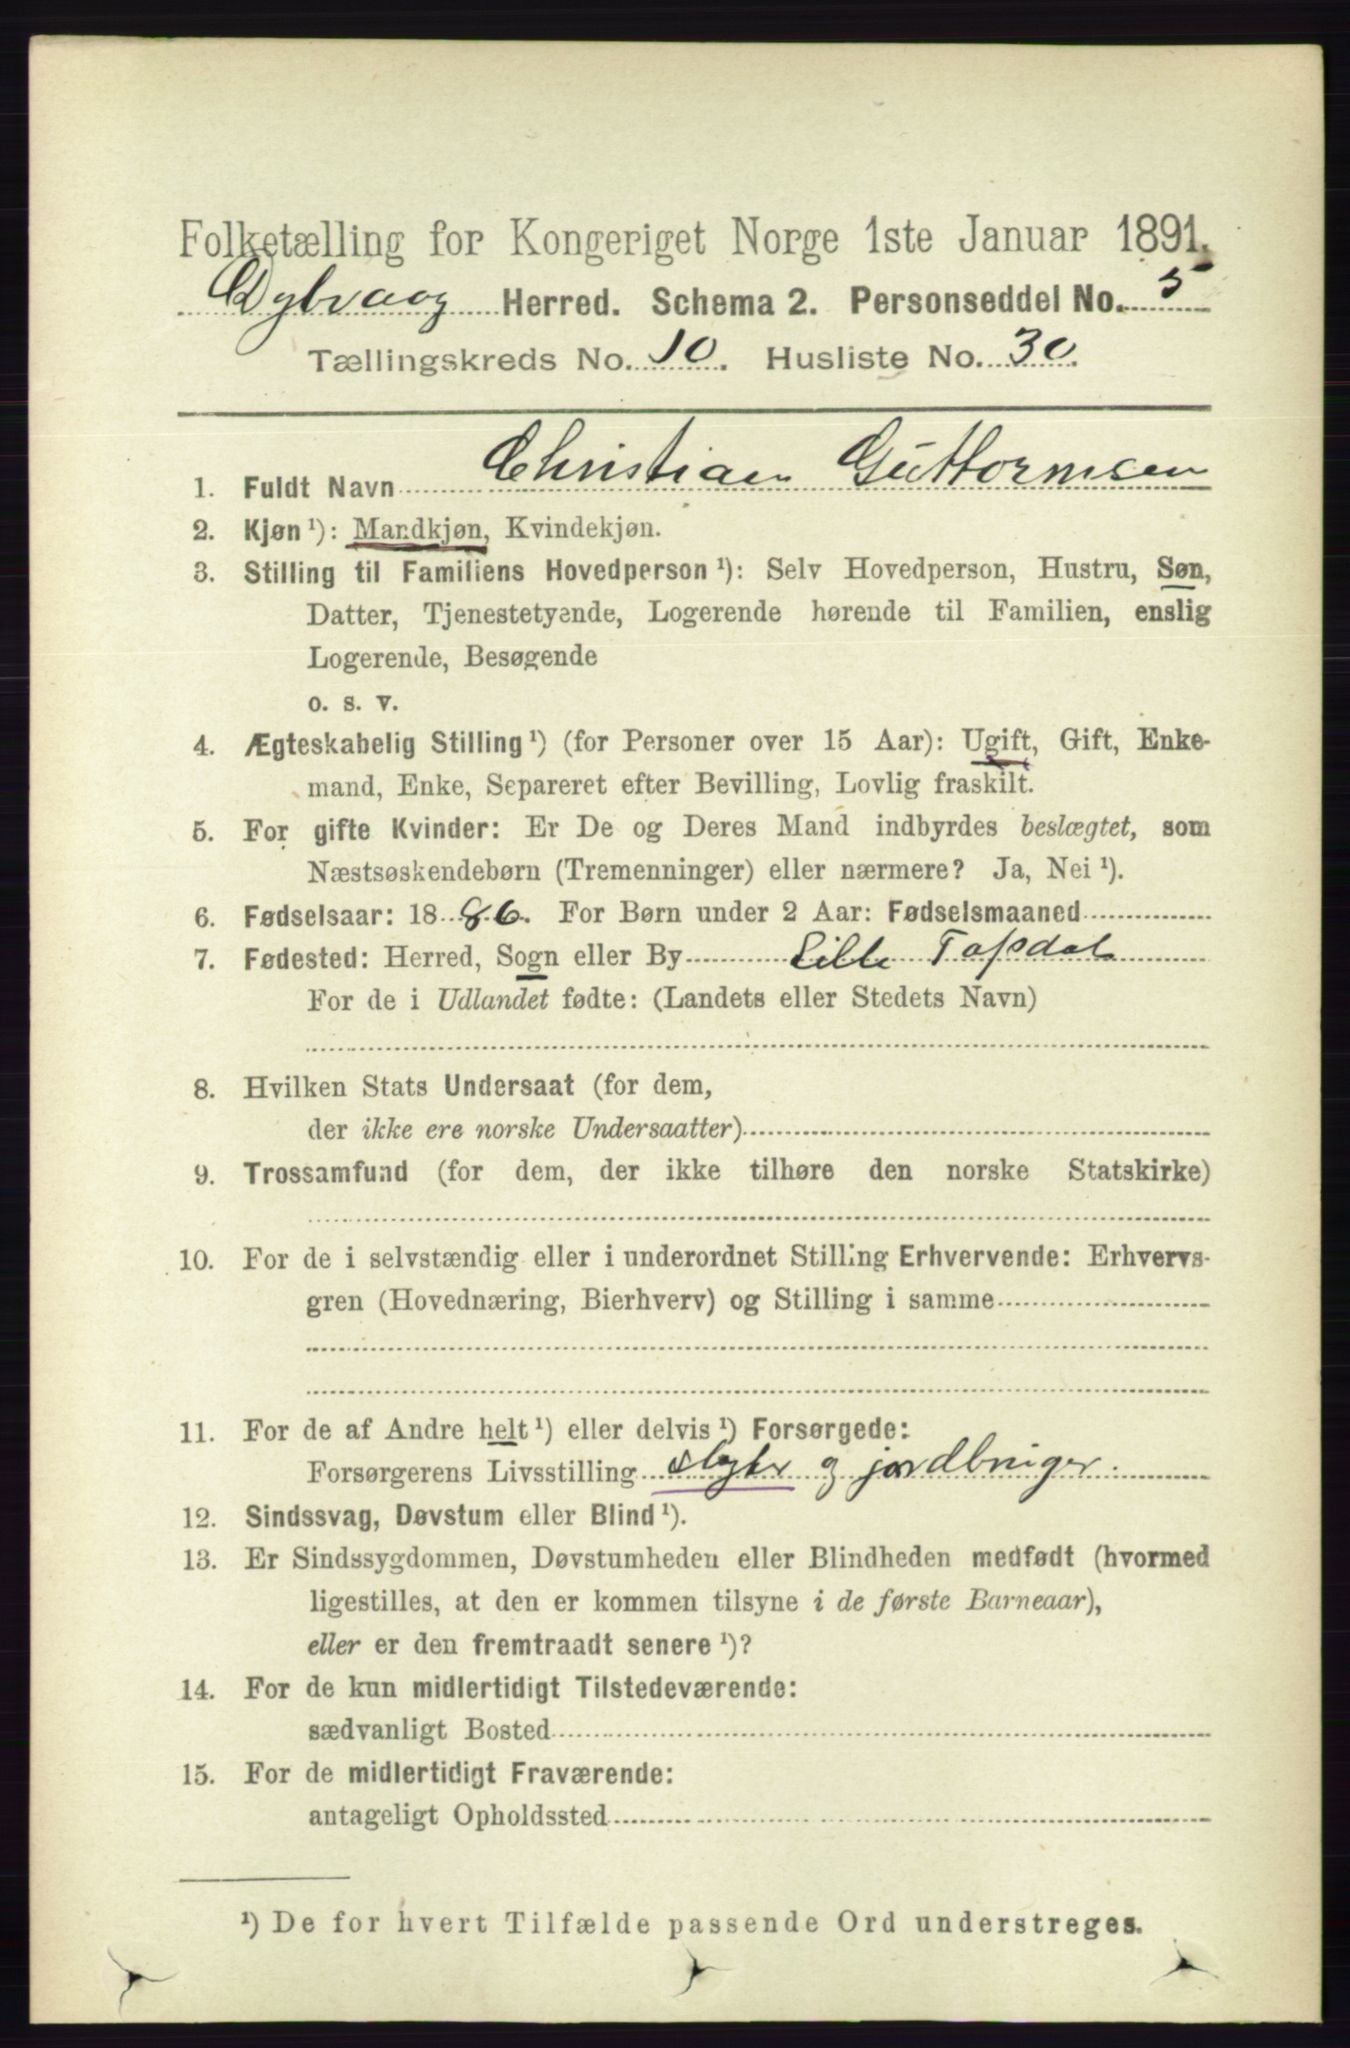 Folketælling for Kongeriget Norge 1ste Januar 1891.
Dybvaag Herred. Schema 2. Personseddel No. 5
Tællingskreds No. 10. Husliste No. 30.
1. Fuldt Navn Christian Guttormsen
2. Kjøn ¹): Mandkjøn, Kvindekjøn.
3. Stilling til Familiens Hovedperson ¹): Selv Hovedperson, Hustru, Søn,
Datter, Tjenestetyende, Logerende hørende til Familien, enslig
Logerende, Besøgende
o. s. v.
4. Ægteskabelig Stilling ¹) (for Personer over 15 Aar): Ugift, Gift, Enke-
mand, Enke, Separeret efter Bevilling, Lovlig fraskilt.
5. For gifte Kvinder: Er De og Deres Mand indbyrdes beslægtet, som
Næstsøskendebørn (Tremenninger) eller nærmere? Ja, Nei ¹).
6. Fødselsaar: 1886. For Børn under 2 Aar: Fødselsmaaned
7. Fødested: Herred, Sogn eller By Lille Topdal
For de i Udlandet fødte: (Landets eller Stedets Navn)
8. Hvilken Stats Undersaat (for dem,
der ikke ere norske Undersaatter)
9. Trossamfund (for dem, der ikke tilhøre den norske Statskirke)
10. For de i selvstændig eller i underordnet Stilling Erhvervende: Erhvervs-
gren (Hovednæring, Bierhverv) og Stilling i samme
11. For de af Andre helt ¹) eller delvis ¹) Forsørgede:
Forsørgerens Livsstilling og jordbruger.
12. Sindssvag, Døvstum eller Blind ¹).
13. Er Sindssygdommen, Døvstumheden eller Blindheden medfødt (hvormed
ligestilles, at den er kommen tilsyne i de første Barneaar),
eller er den fremtraadt senere ¹)?
14. For de kun midlertidigt Tilstedeværende:
sædvanligt Bosted
15. For de midlertidigt Fraværende:
antageligt Opholdssted
¹) De for hvert Tilfælde passende Ord understreges.